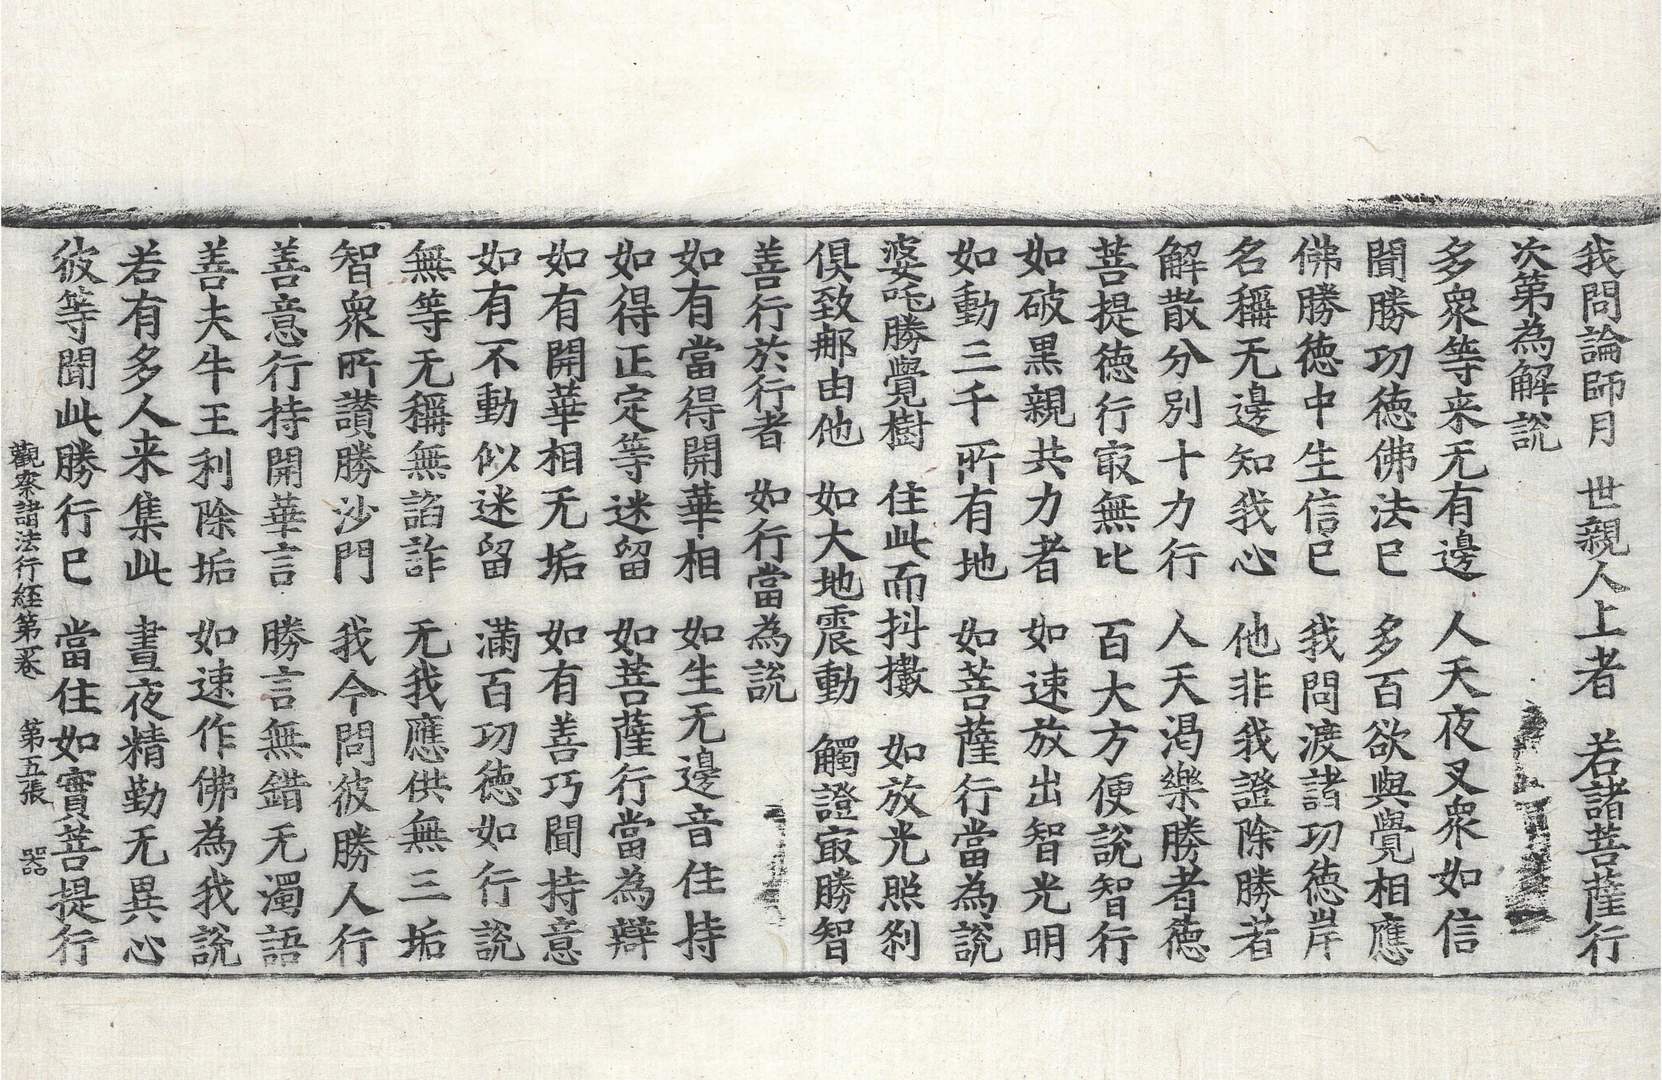 我問論師月　世親人上者　若諸菩薩行
次第為解說
多衆等来无有邊　人天夜叉衆如信
聞勝功德佛法巳　多百欲與覺相應
佛勝德中生信巳　我問渡諸功德岸
名稱无邊知我心　他非我證除勝者
解散分別十力行　人天渴樂勝者德
菩提德行㝡無比　百大方便說智行
如破黒親共力者　如速放出智光明
如動三千所有地　如菩薩行當為說
婆吒勝覺樹　住此而抖擻　如放光照刹
俱致那由他　如大地震動　觸證㝡勝智
善行於行者　如行當為說
如有當得開華相　如生无邊音住持
如得正定等迷留　如菩薩行當為辯
如有開華相无垢　如有善巧聞持意
如有不動似迷留　滿百功德如行說
無等无稱無諂詐　无我應供無三垢
智衆所讃勝沙門　我今問彼勝人行
善意行持開華言　勝言無錯无濁語
善夫牛王利除垢　如速作佛為我說
若有多人来集此　晝夜精勤无異心
彼等聞此勝行巳　當住如實菩提行
觀察諸法行經第二卷　第五張　器